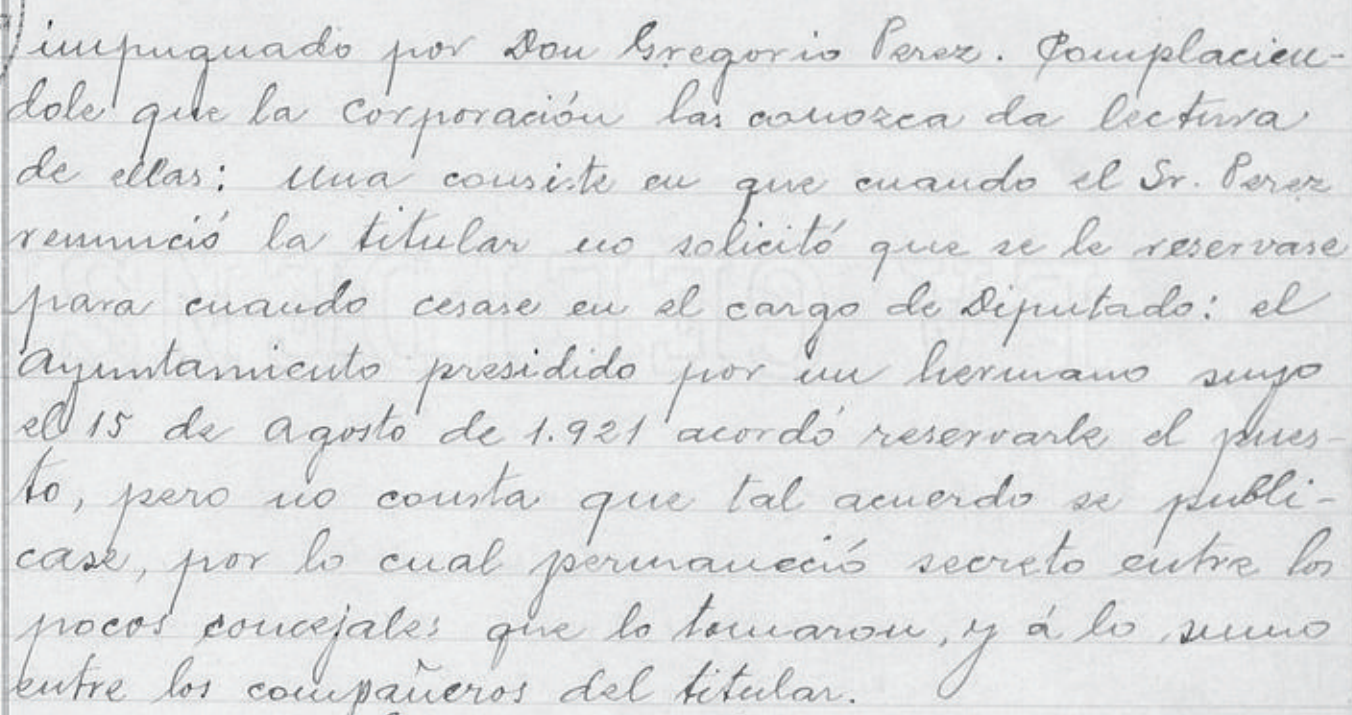 impugnado por Don Gregorio Perez. Complacien-
dole que la Corporación las conozca da lectura
de ellas: Una consiste en que cuando el Sr. Perez
renunció la titular no solicitó que se le reservase
para cuando cesase en el cargo de Diputado: el
Ayuntamiento presidido por un hermano suyo
el 15 de Agosto de 1.921 acordó reservarle el pues-
to, pero no consta que tal acuerdo se publi-
case, por lo cual permaneció secreto entre los
pocos concejales que lo tomaron, y á lo sumo
entre los compañeros del titular.